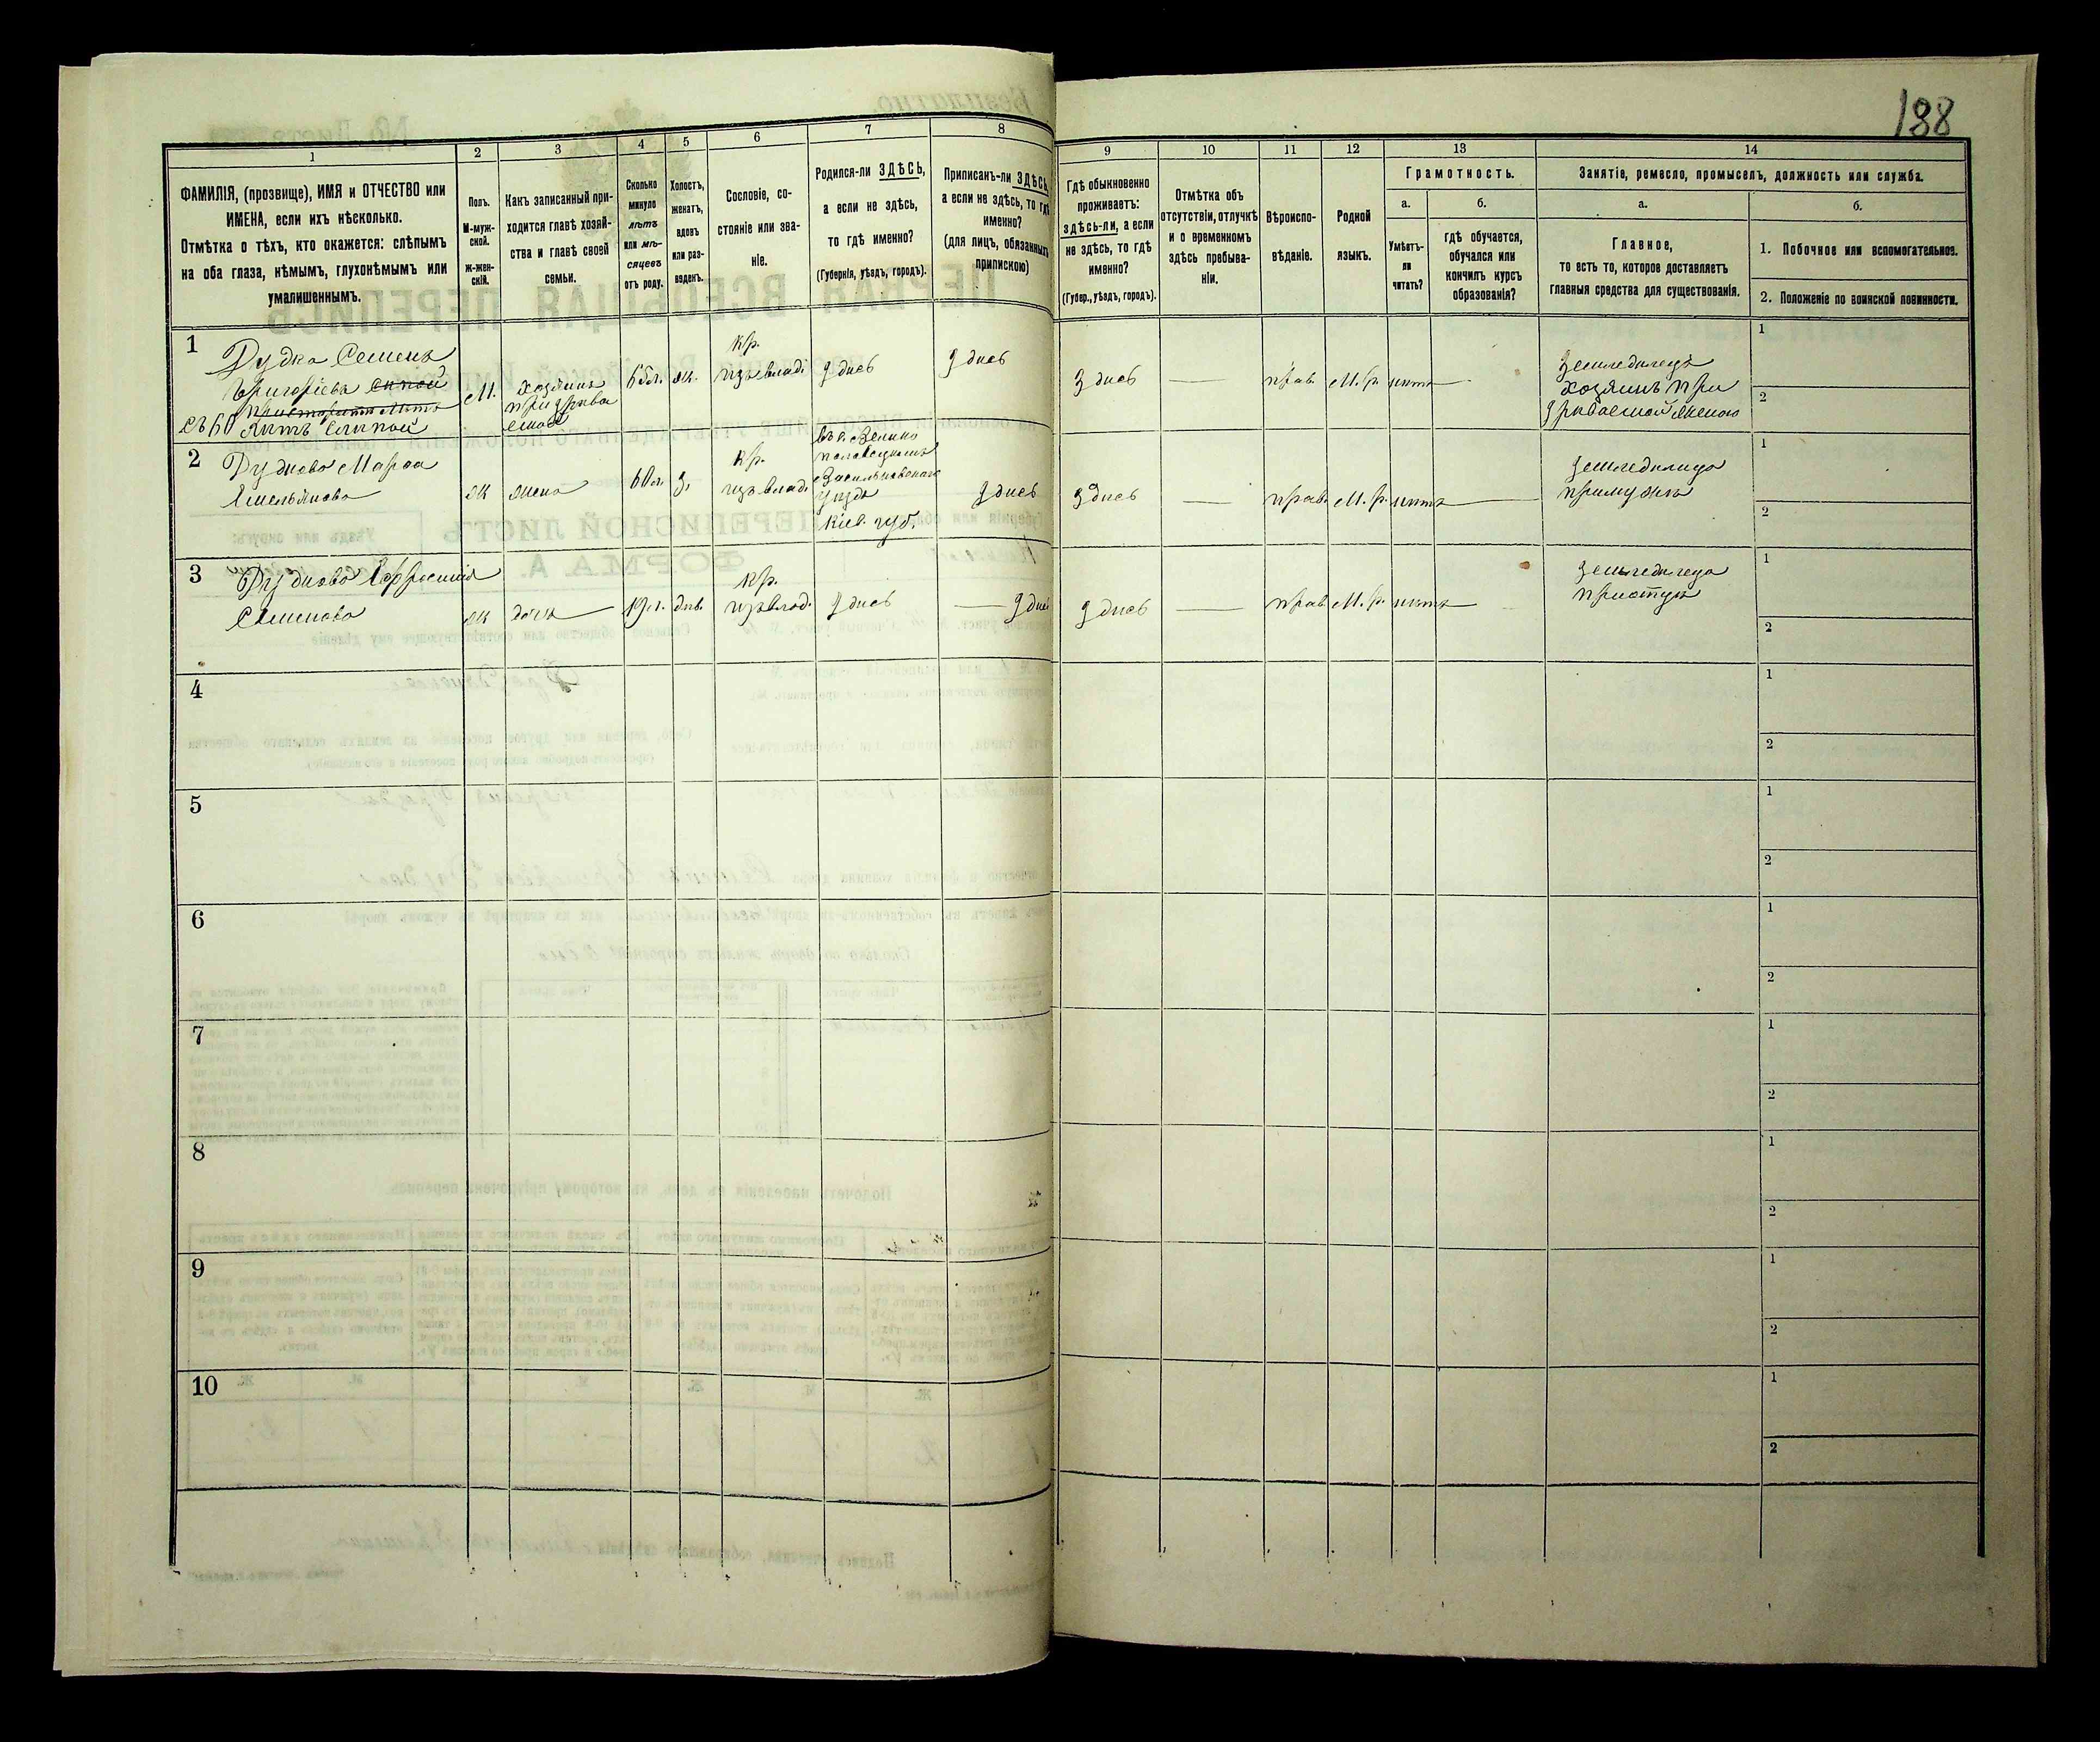 188
1
2
3
4
5
6
7
8
ФАМИЛІЯ, (прозвище), ИМЯ и ОТЧЕСТВО или
ИМЕНА, если ихъ нѣсколько.
Отмѣтка о тѣхъ, кто окажется: слѣпымъ
на оба глаза, нѣмымъ, глухонѣмымъ или
умалишеннымъ.
Полъ.
М-муж-
ской.
ж-жен-
скій.
Какъ записанный при-
ходится главѣ хозяй-
ства и главѣ своей
семьи.
Сколько
минуло
лѣтъ
или мѣ-
сяцевъ
отъ роду.
Холостъ,
женатъ,
вдовъ
или раз-
веденъ.
Сословіе, со-
стояніе или зва-
ніе.
Родился-ли ЗДѢСЬ,
а если не здѣсь,
то гдѣ именно?
(Губернія, уѣздъ, городъ).
Приписанъ-ли ЗДѢСЬ,
а если не здѣсь, то гдѣ
именно?
(для лицъ, обязанныхъ
припискою)
9
10
11
12
13
14
Гдѣ обыкновенно
проживаетъ:
здѣсь-ли, а если
не здѣсь, то гдѣ
именно?
(Губер., уѣздъ, городъ).
Отмѣтка объ
отсутствіи, отлучкѣ
и о временномъ
здѣсь пребыва-
ніи.
Вѣроиспо-
вѣданіе.
Родной
языкъ.
Грамотность.
а.
б.
Умѣетъ-
ли
читать?
гдѣ обучается,
обучался или
кончилъ курсъ
образованія?
Занятіе, ремесло, промыселъ, должность или служба.
а.
б.
Главное,
то есть то, которое доставляетъ
главныя средства для существованія.
1. Побочное или вспомогательное.
2. Положеніе по воинской повинности.
1
Дудка Семенъ
Григоріевъ слѣпой
съ 60 лѣтъ слѣпой
М.
хозяинъ
65 л.
жъ.
Кр.
изъ влад.
здѣсь
здѣсь
здѣсь
прав.
М. р.
нѣтъ
Земледѣлецъ
хозяинъ при
1
2
2
Дудкова Марѳа
Емельянова
ж
жена
60 л.
з.
Кр.
изъ влад.
Васильковскаго
уѣзда
Кіев. губ.
здѣсь
здѣсь
прав.
М. р.
нѣтъ
Земледѣлица
при мужѣ
1
2
3
Дудкова Евфросинія
Семенова
ж
дочь
19 л.
дѣв.
Кр.
изъ влад.
здѣсь
здѣсь
здѣсь
прав.
М. р.
нѣтъ
земледѣлица
при отцѣ
1
2
4
1
2
5
1
2
6
1
2
7
1
2
8
1
2
9
1
2
10
1
2